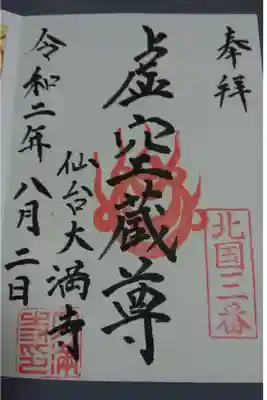 奉拝
北国三番
虚空蔵尊
仙台大満寺
令和二年八月二日